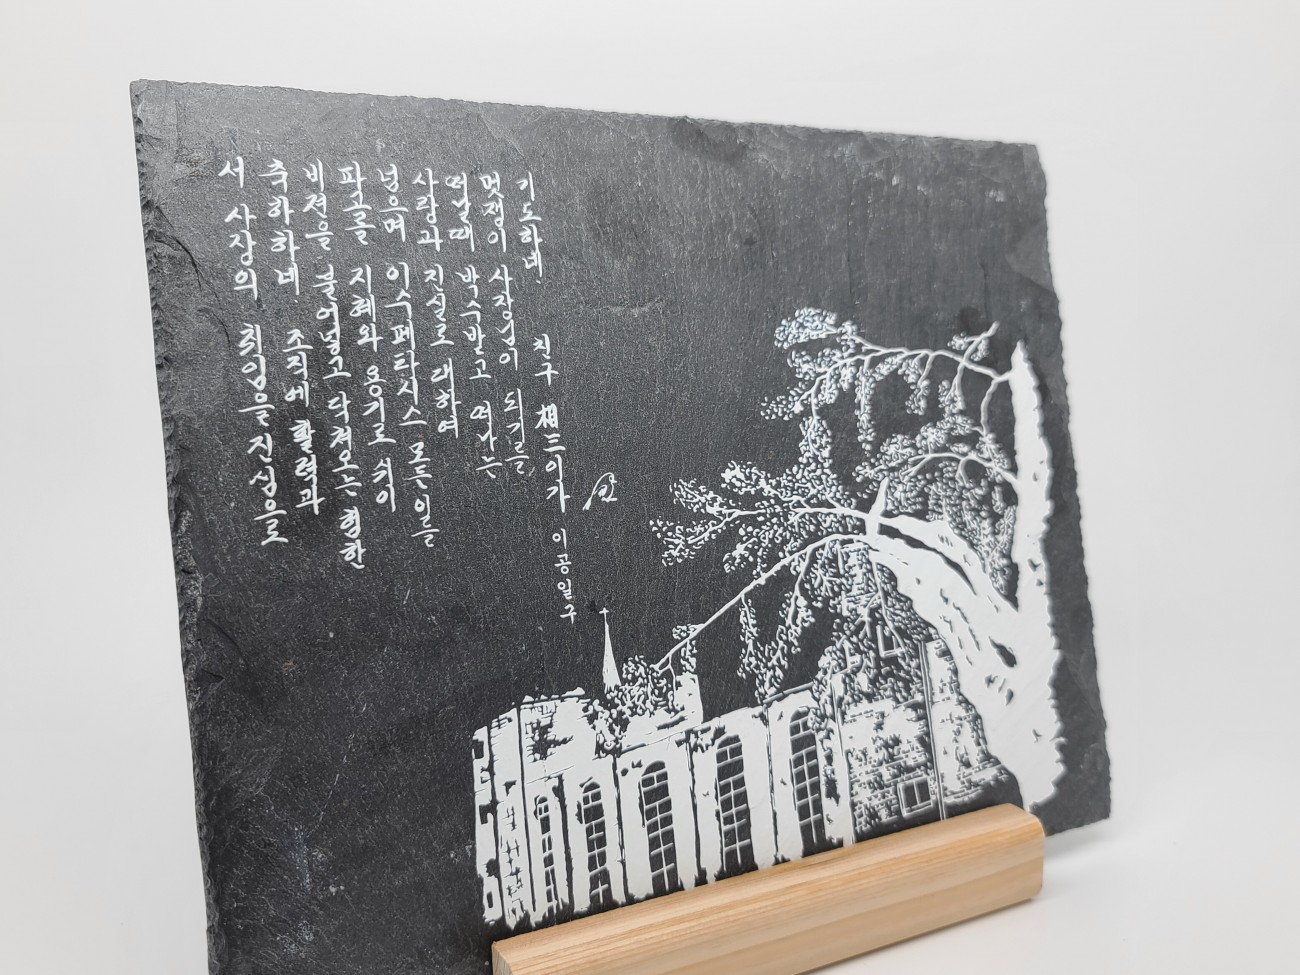 서 사장의 취임을 진심으로
축하하네. 조직에 활력과
비젼을 불어넣고 닥쳐오는 험한
파고를 지혜와 용기로 쉬이
넘으며 이수페타시스 모든이를
사랑과 진실로 대하여
떠날때 박수받고 떠나는
멋쟁이 사장님이 되기를
기도하네. 친구 相三이가 이공일구